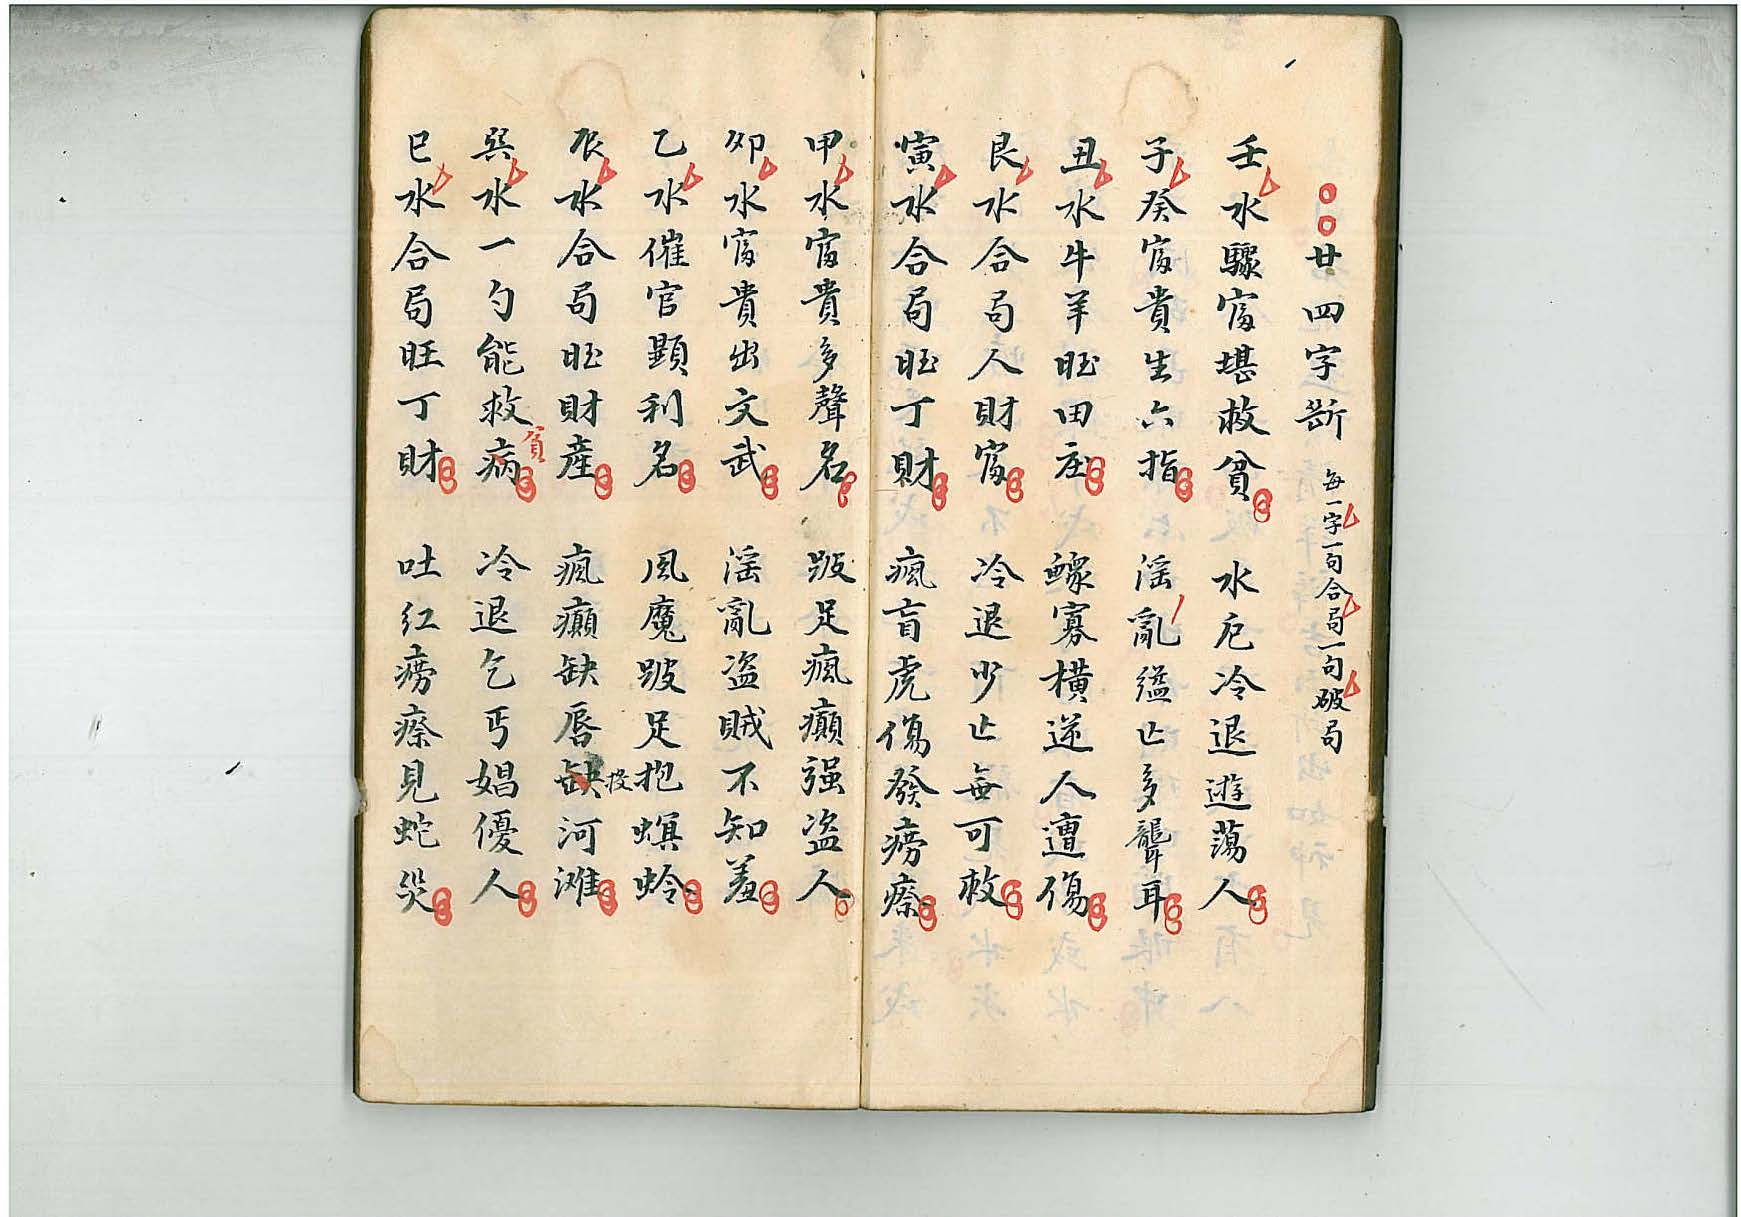 廿四字斷 每一字一句合局一句破局
壬水驟富堪救貧 水厄冷退遊蕩人
子癸富貴生六指 淫亂縊亡多聾耳
丑水牛羊旺田庄 鰥寡橫逆人遭傷
艮水合局人財富 冷退少亡無可救
寅水合局旺丁財 瘋盲虎傷發癆瘵
甲水富貴多聲名 跛足瘋癲强盜人
卯水富貴出文武 淫亂盜賊不知羞
乙水催官顯利名 風魔跛足抱螟蛉
辰水合局旺財產 瘋癲缺唇缺投河灘
巽水一勺能救病貧 冷退乞丐娼優人
巳水合局旺丁財 吐红癆瘵見蛇災